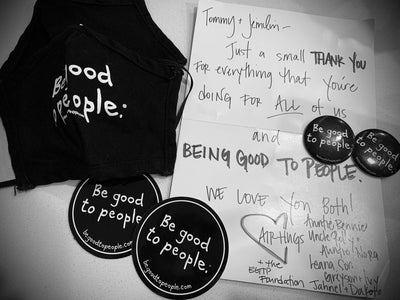 Be good
to people.
Tommy + Jemilin -
Just a small THANK YOU
FOR everything that You're
doing FOR ALL of us
and
BEING GOOD TO PEOPLE.
WE LOVE You BOTH!
AIR HUGS
+ the
BGTP
Foundation
Auntie Bennie
Auntie Nora
Be good
to people.
Be good
to people.
Be good
to people.
begoodtopeople.com
Be good
to people.
begoodtopeople.com